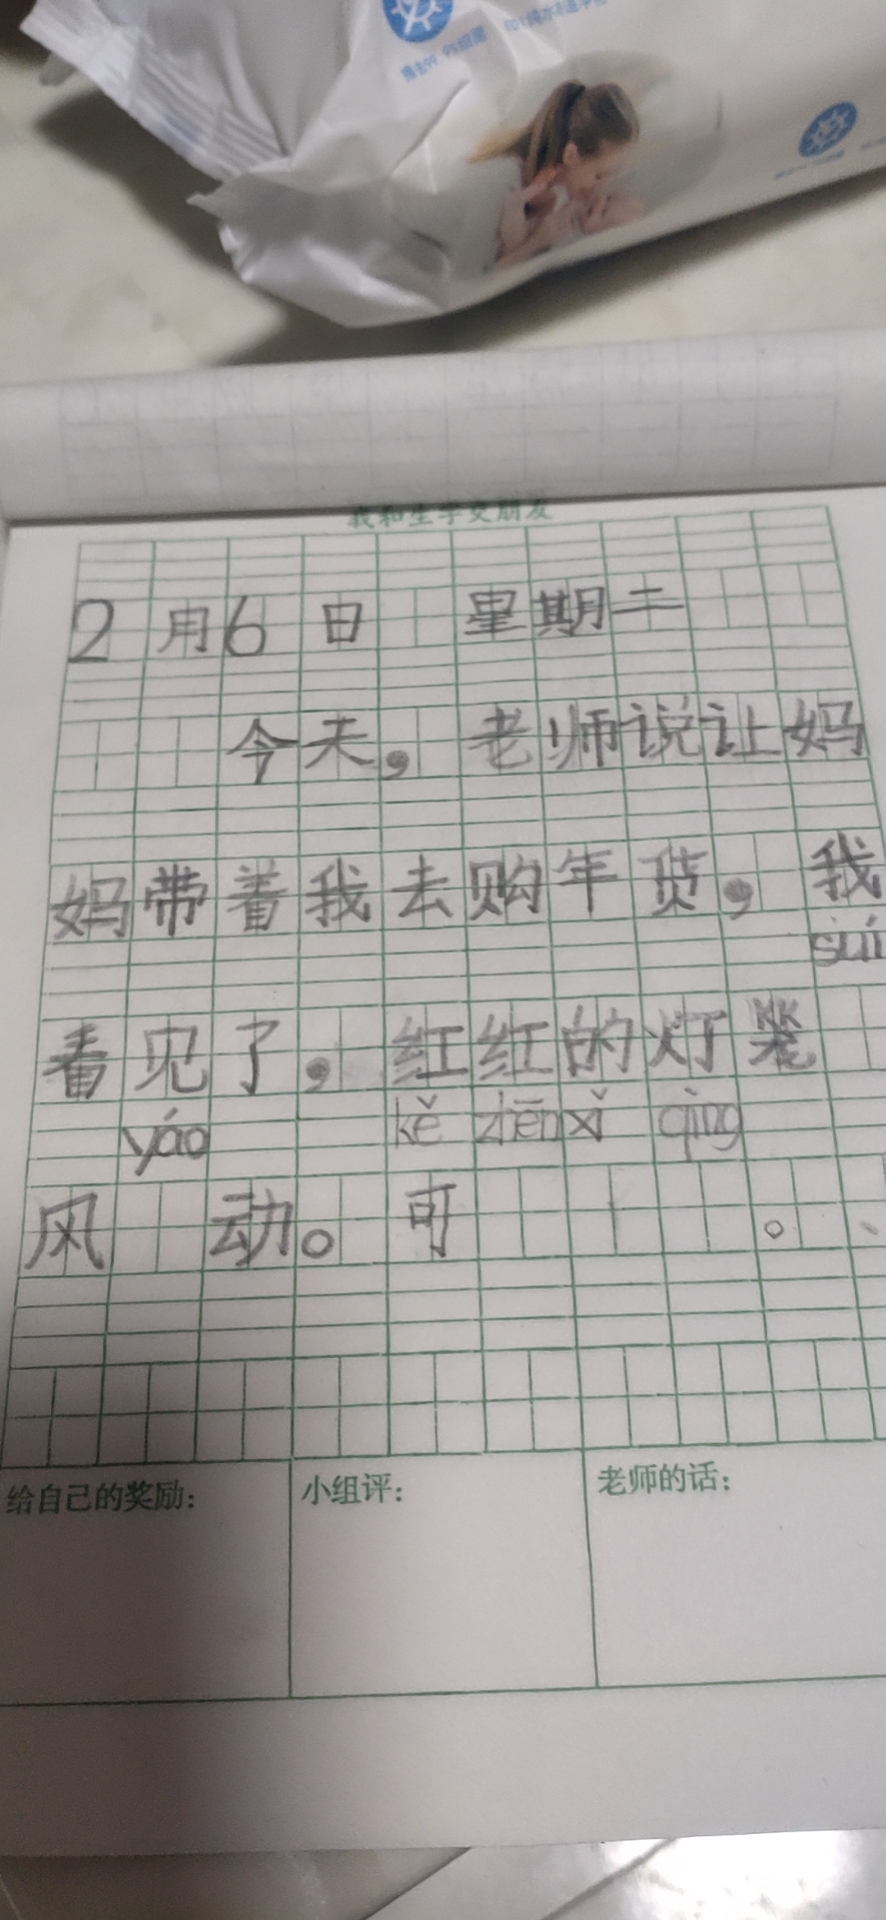 我和生字交朋友
2月6日 星期二
今天，老师说让妈
妈带着我去购年货，我
suí
看见了，红红的灯笼
yáo kě zhēn xǐ qìng
风 动。可 。
给自己的奖励： 小组评： 老师的话：